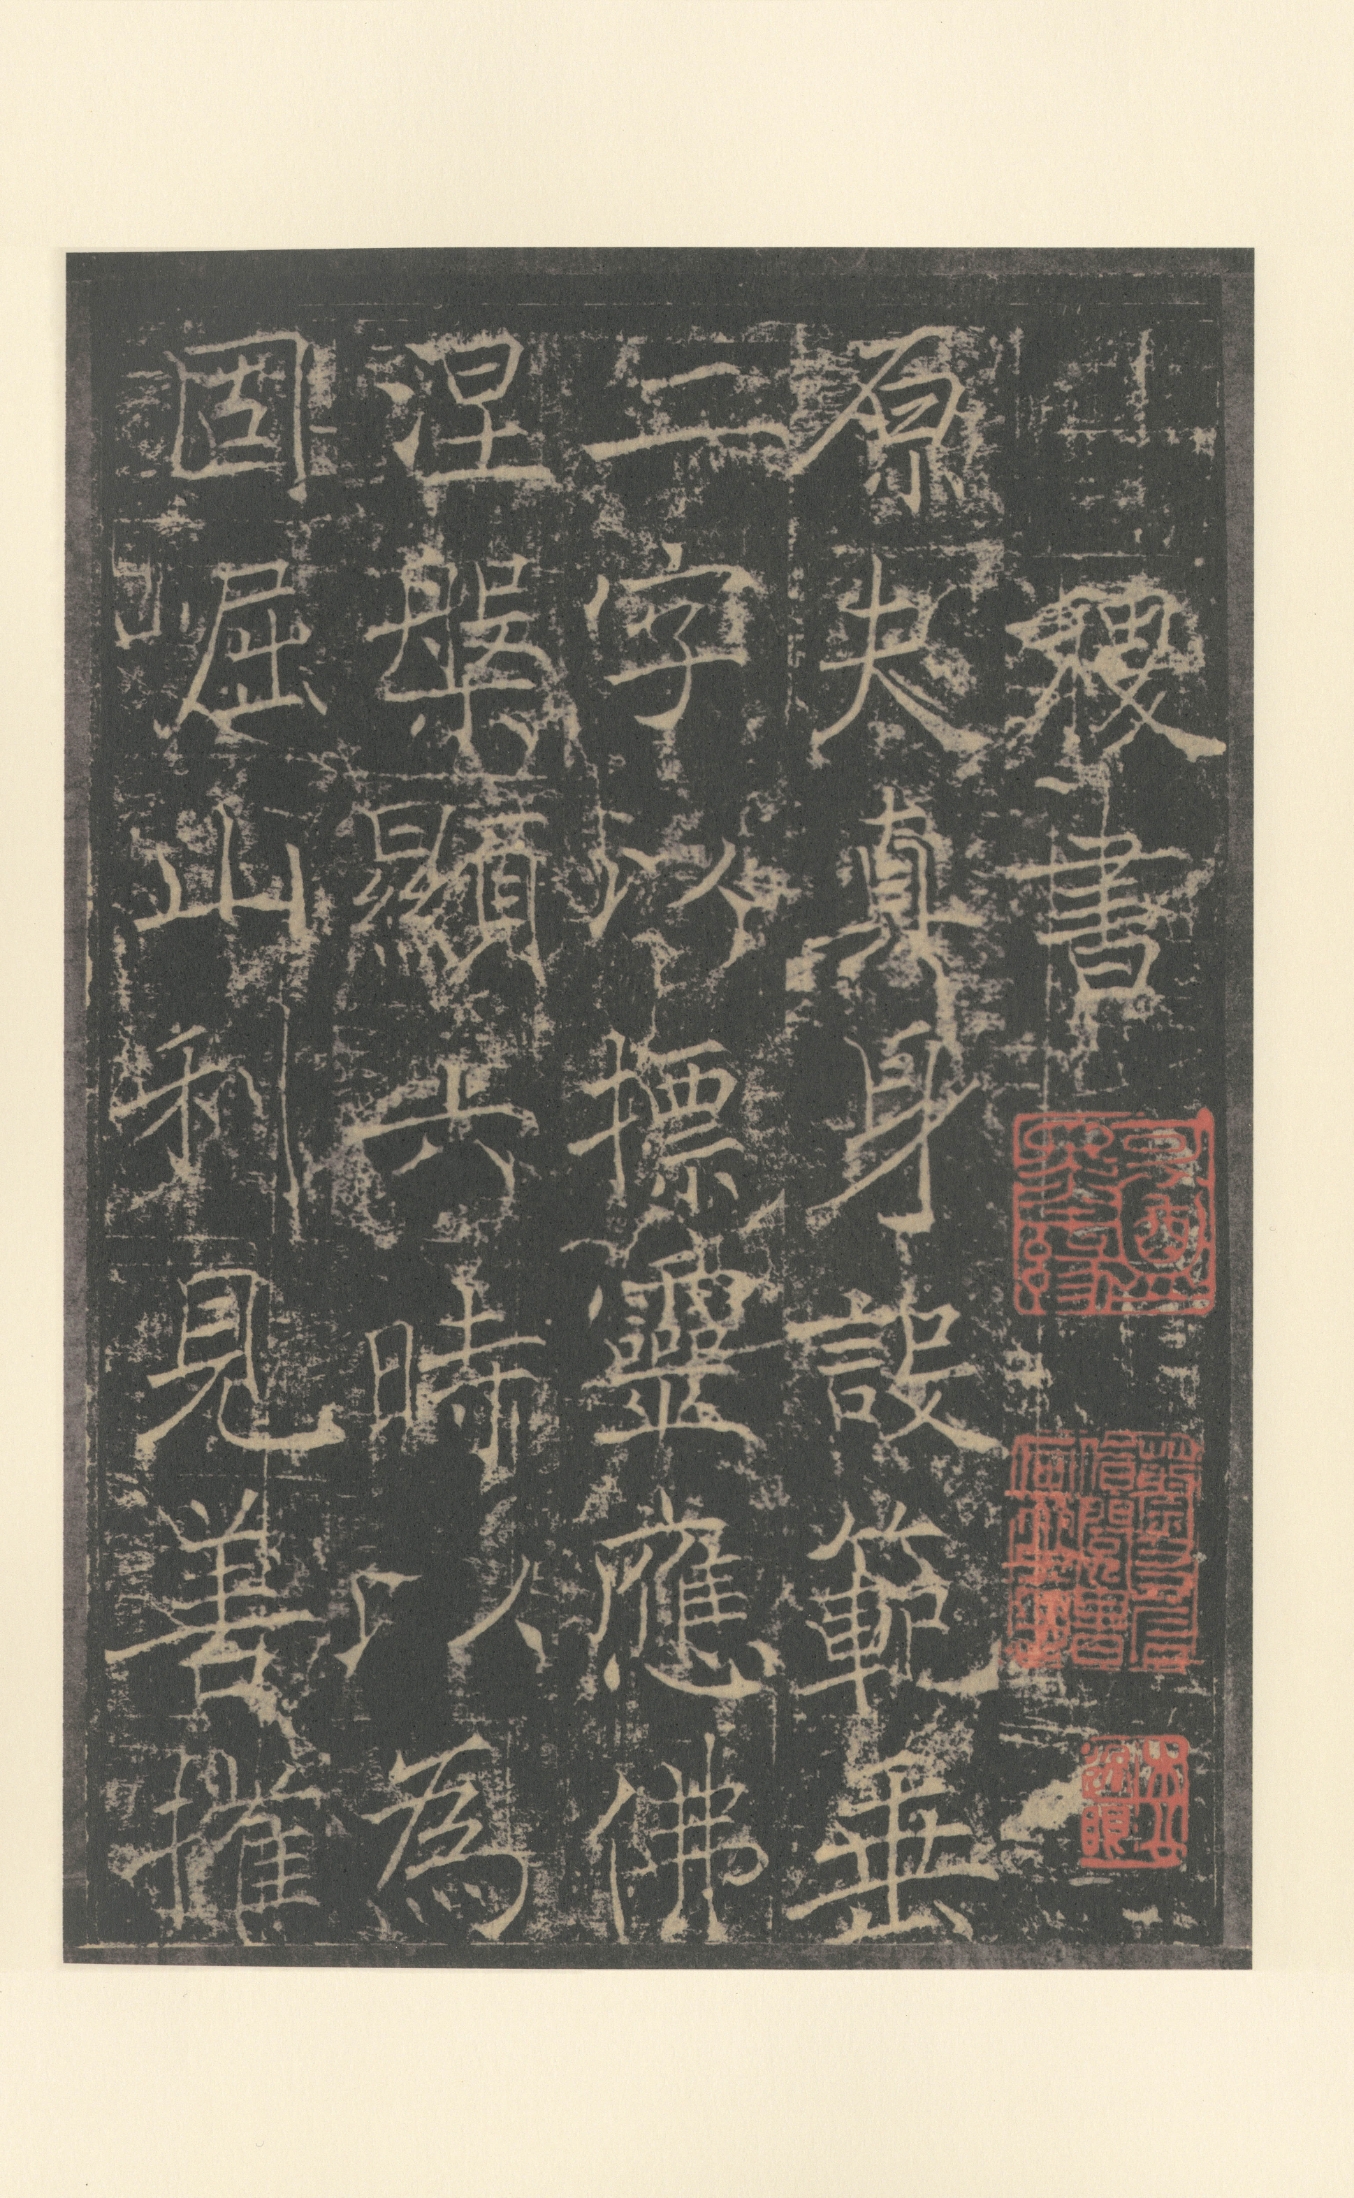 稷書
原夫真身設範垂
二字以標靈應佛
涅槃顯六時以為
固崛山利見善權